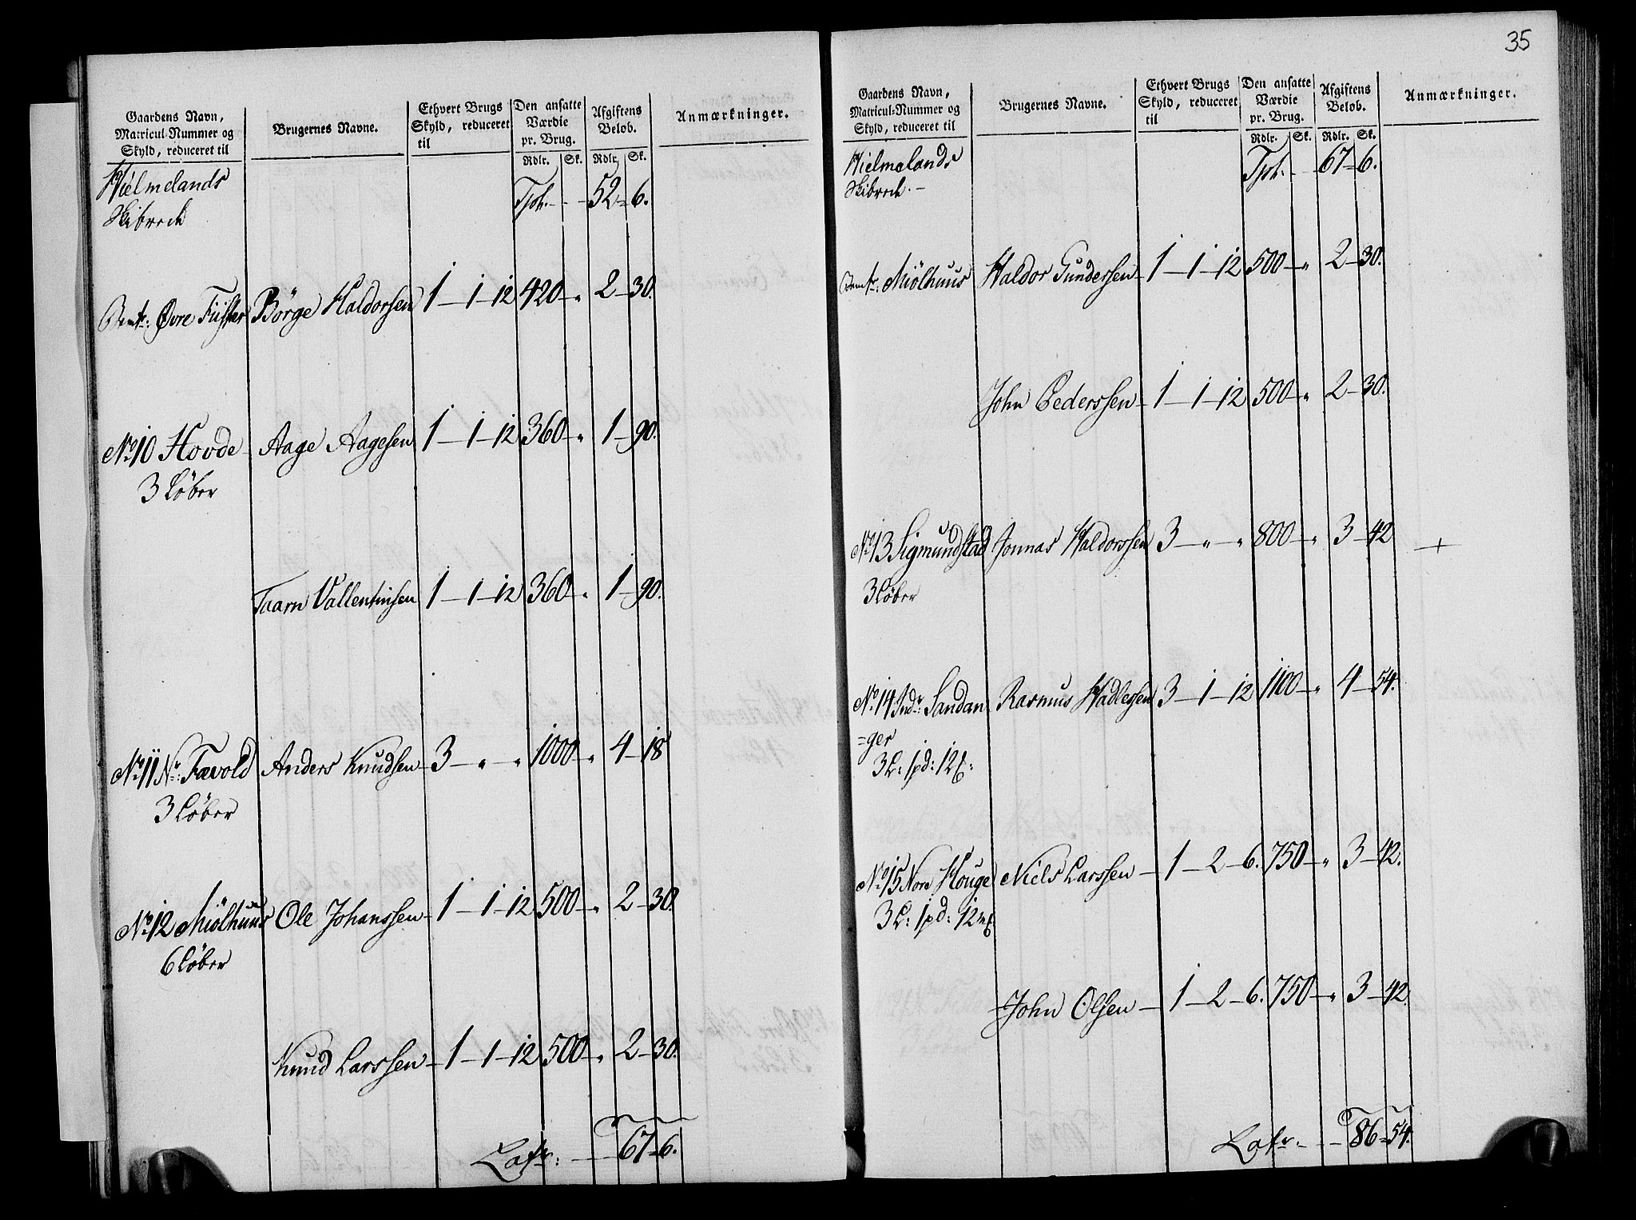 Gaardens Navn, Matricul-Nummer og Skyld, reduceret til
Brugernes Navne.
Ethvert Brugs Skyld, reduceret til
Den ansatte Værdie pr. Brug.
Afgiftens Beløb.
Anmærkninger.
Rdlr. Sk. Rdlr. Sk.
Hielmelands Tpt. - - 52 - 6.
Skibrede
Øvre Fiister Börge Haldorsen 1 - 1 - 12 420 - " 2 - 30.
No 10 Hovde Aage Aagesen 1 - 1 - 12 360 - " 1 - 90.
3 Løber
Taarn Vallentinsen 1 - 1 - 12 360 - " 1 - 90.
No 11 Nr: Fævold Anders Knudsen 3 - " - " 1000 - " 4 - 18
3 Løber
No 12 Miölhuus Ole Johanssen 1 - 1 - 12 500 - " 2 - 30.
6 Løber
Knud Larssen 1 - 1 - 12 500 - " 2 - 30.
Latr: - - 67 - 6.
35
Gaardens Navn, Matricul-Nummer og Skyld, reduceret til
Brugernes Navne.
Ethvert Brugs Skyld, reduceret til
Den ansatte Værdie pr. Brug.
Afgiftens Beløb.
Anmærkninger.
Rdlr. Sk. Rdlr. Sk.
Hielmelands Tpt. - - 67 - 6.
Skibrede. -
Miölhuus Haldor Gunderssen 1 - 1 - 12 500 - " 2 - 30.
John Pederssen 1 - 1 - 12 500 - " 2 - 30.
No 13 Sigmundstad Jonnas Haldorssen 3 - " - " 800 - " 3 - 42 +
3 Løber
No 14 Indr: Sandan Rasmus Hadlessen 3 - 1 - 12 1100 - " 4 - 54.
=ger
3 L: 1 pd: 12
No 15 Nore Houge Niels Larssen 1 - 2 - 6. 750 - " 3 - 42.
3 L: 1 pd: 12
John Olsen 1 - 2 - 6. 750 - " 3 - 42.
Latr - - 86 - 54.